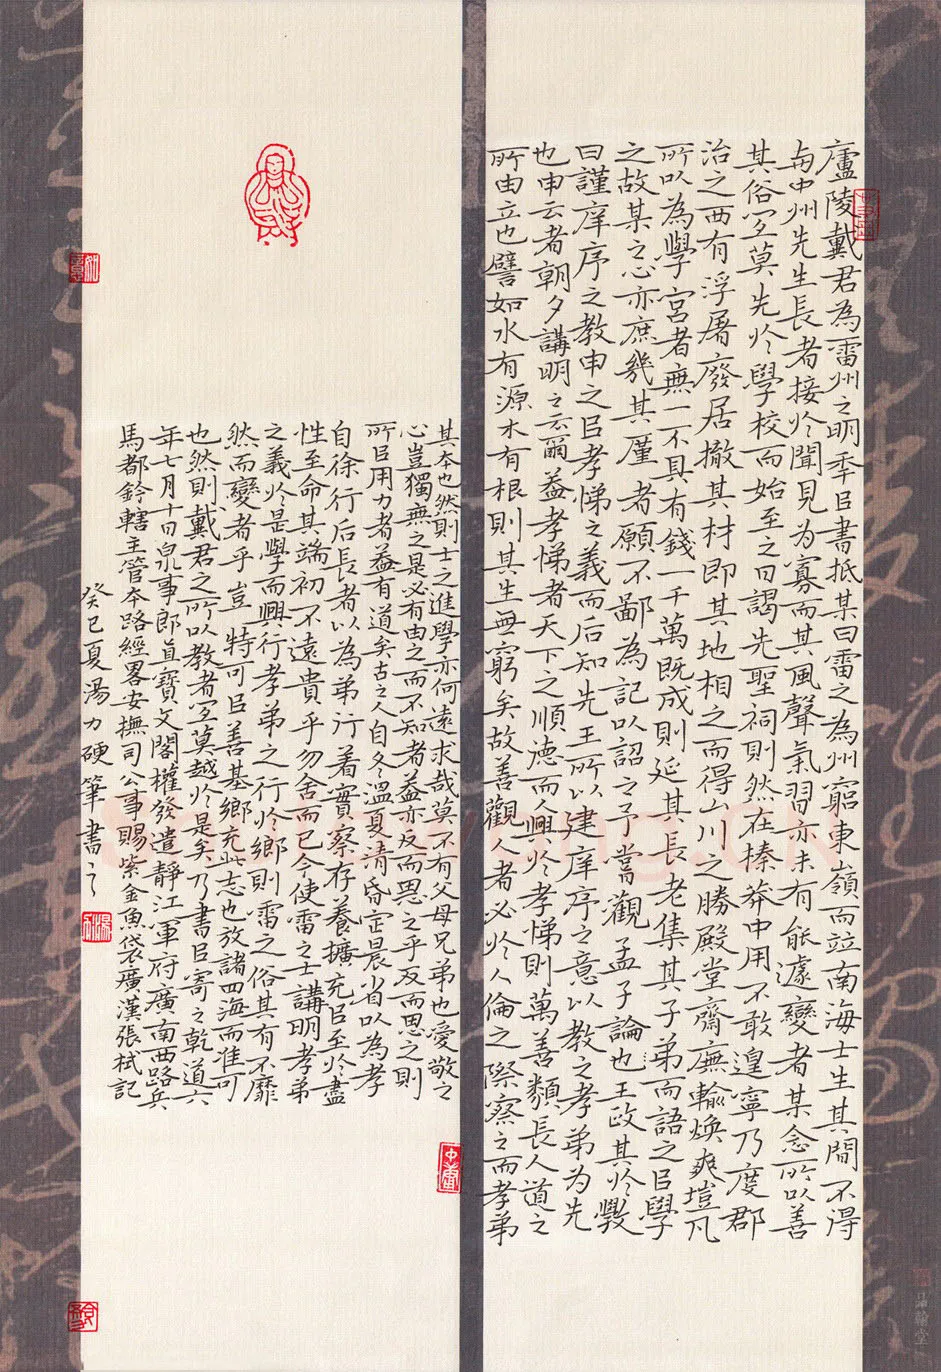 廬陵戴君為雷州之明季㠯書抵某曰雷之為州窮東嶺而竝南海士生其間不得
与中州先生長者接於聞見为寡而其風聲氣習亦未有能遽變者某念所以善
其俗宐莫先於學校而始至之日謁先聖祠則然在榛莽中用不敢遑寧乃度郡
治之西有浮屠廢居撤其材即其地相之而得山川之勝殿堂齋廡輪煥爽塏凡
所以為學宮者無一不具有錢一千萬既成則延其長老集其子弟而語之㠯學
之故某之心亦庶幾其厪者願不鄙為記以詔之予嘗觀孟子論也王政其於斅
曰謹庠序之教申之㠯孝悌之義而后知先王所以建庠序之意以教之孝弟为先
也申云者朝夕講明之云爾葢孝悌者天下之順德而人興於孝悌則萬善類長人道之
所由立也譬如水有源木有根則其生無窮矣故善觀人者必於人倫之際察之而孝弟
其夲也然則士之進學亦何遠求哉莫不有父母兄弟也愛敬之
心豈獨無之是必有由之而不知者葢亦反而思之乎反而思之則
所㠯用力者葢有道矣古之人自冬溫夏清昏定晨省以為孝
自徐行后長者以為弟行着實察存養擴充㠯至於盡
性至命其端初不遠貴乎勿舍而已今使雷之士講明孝弟
之義於是學而興行孝弟之行於鄉則雷之俗其有不靡
然而變者乎豈特可㠯善基鄉充此志也放諸四海而准可
也然則戴君之所以教者宐莫越於是矣乃書㠯寄之乾道六
年七月十日㒸事郎直寶文閣權發遣靜江軍府廣南西路兵
馬都鈐轄主管夲路經畧安撫司公事賜紫金魚袋廣漢張栻記
癸巳夏湯力硬筆書之